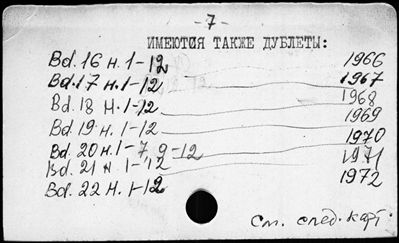 - 7 -
ИМЕЮТСЯ ТАКЖЕ ДУБЛЕТЫ:
Bd. 16 н. 1-12 1966
Bd. 17 н. 1-12 1967
Bd. 18 н. 1-12 1968
Bd. 19 н. 1-12 1969
Bd. 20 н. 1-7, 9-12 1970
Bd. 21 н. 1-12 1971
Bd. 22 н. 1-12 1972
См. след. карт.